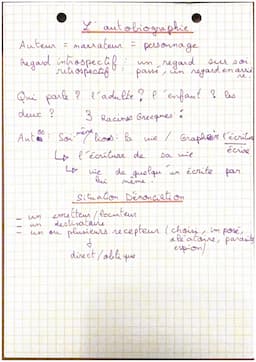 L'autobiographie
Auteur = narrateur = personnage
Regard introspectif : un regard sur soi
rétrospectif : passé, un regard en arriè
re.
Qui parle ? l'adulte ? l'enfant ? les
deux ? 3 Racines Grecques :
Auto Soi même / bios : la vie / Graphein : l'écriture
écrire
↳ l'écriture de sa vie
↳ vie de quelqu'un écrite par
lui même.
Situation Dénonciation
- un émetteur / locuteur
- un destinataire
- un ou plusieurs recepteur (choisi, imposé,
aléatoire, parasite
espion)
↓
direct / oblique